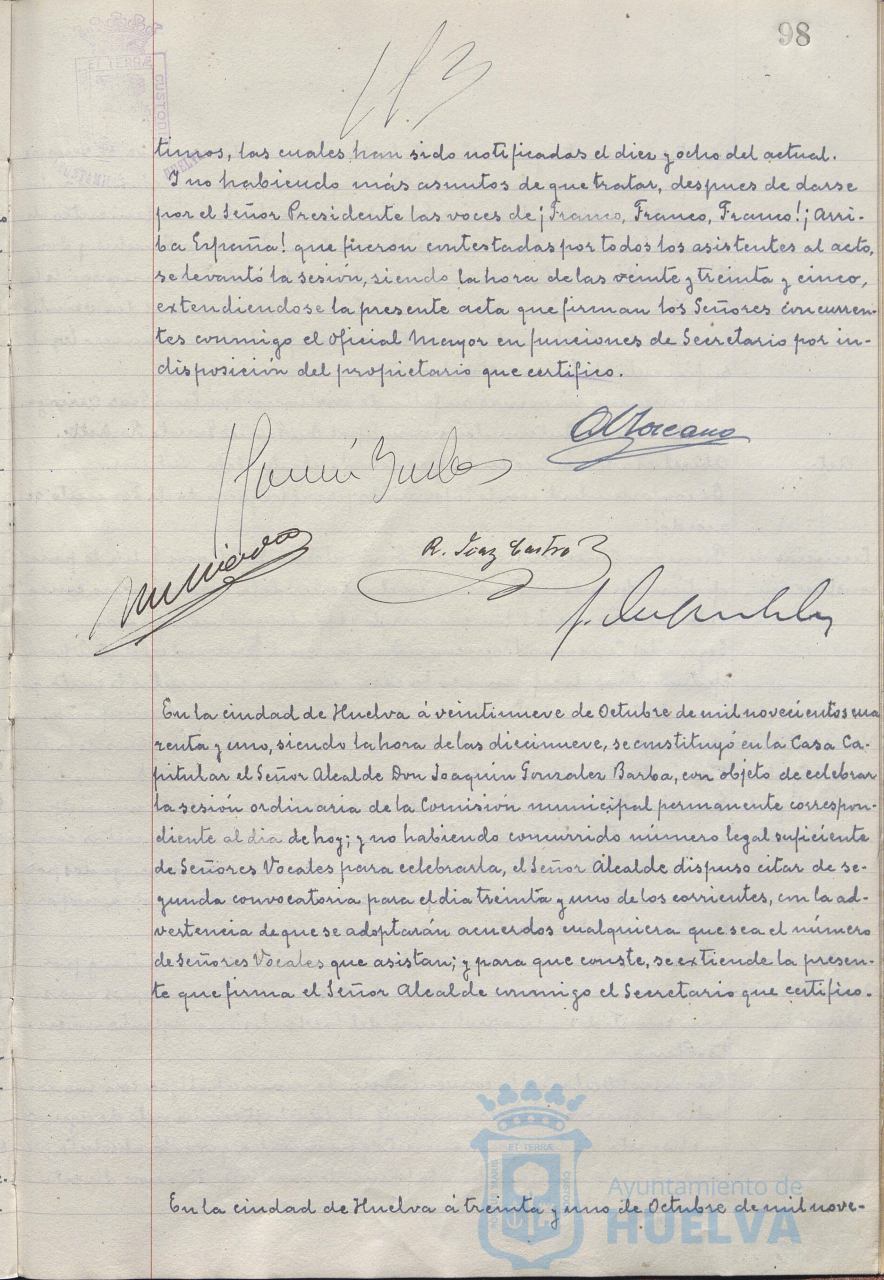 98
timos, las cuales han sido notificadas el diez y ocho del actual.
Y no habiendo más asuntos de que tratar, despues de darse
por el Señor Presidente las voces de ¡Franco, Franco, Franco! ¡Arri-
ba España! que fueron contestadas por todos los asistentes al acto,
se levantó la sesión, siendo la hora de las veinte y treinta y cinco,
extendiendose la presente acta que firman los Señores concurren-
tes conmigo el Oficial Mayor en funciones de Secretario por in-
disposición del propietario que certifico.
R. Diaz Castro
En la ciudad de Huelva á veintinueve de Octubre de mil novecientos cua
renta y uno, siendo la hora de las diecinueve, se constituyó en la Casa Ca-
pitular el Señor Alcalde Don Joaquín Gonzalez Barba, con objeto de celebrar
la sesión ordinaria de la Comisión municipal permanente correspon-
diente al dia de hoy; y no habiendo concurrido número legal suficiente
de Señores Vocales para celebrarla, el Señor Alcalde dispuso citar de se-
gunda convocatoria para el dia treinta y uno de los corrientes, con la ad-
vertencia de que se adoptarán acuerdos cualquiera que sea el número
de Señores Vocales que asistan; y para que conste, se extiende la presen-
te que firma el Señor Alcalde conmigo el Secretario que certifico.
ET TERRÆ
Ayuntamiento de
HUELVA
En la ciudad de Huelva á treinta y uno de Octubre de mil nove-